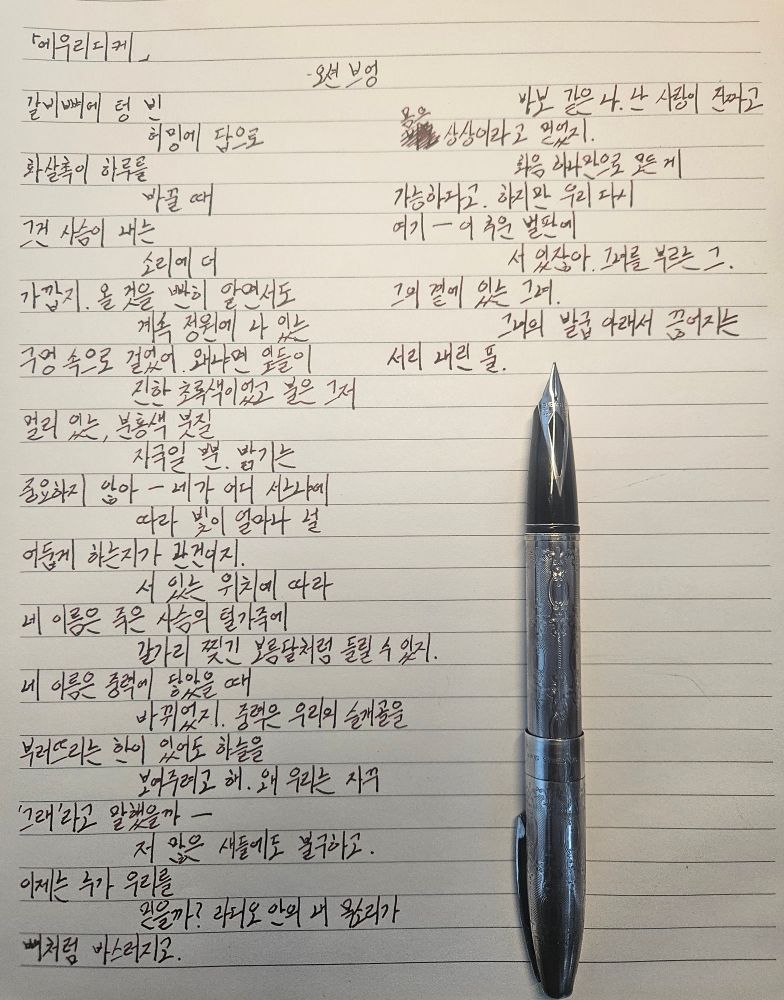 「에우리디케」
-오션 브엉
갈비뼈에 텅 빈
허밍에 답으로
화살촉이 하루를
바꿀 때
그건 사슴이 내는
소리에 더
가깝지. 올 것을 뻔히 알면서도
계속 정원에 나 있는
구멍 속으로 걸었어. 왜냐면 잎들이
진한 초록색이었고 불은 그저
멀리 있는, 분홍색 붓질
자국일 뿐. 밝기는
중요하지 않아 — 네가 어디 서느냐에
따라 빛이 얼마나 널
어둡게 하는지가 관건이지.
서 있는 위치에 따라
네 이름은 죽은 사슴의 털가죽에
갈가리 찢긴 보름달처럼 들릴 수 있지.
네 이름은 중력에 닿았을 때
바뀌었지. 중력은 우리의 슬개골을
부러뜨리는 한이 있어도 하늘을
보여주려고 해. 왜 우리는 자꾸
'그래'라고 말했을까 —
저 많은 새들에도 불구하고.
이제는 누가 우리를
믿을까? 라디오 안의 내 목소리가
뼈처럼 바스러지고.
바보 같은 나. 난 사랑이 진짜고
몸은 상상이라고 믿었지.
화음 하나만으로 모든 게
가능하다고. 하지만 우리 다시
여기 — 이 추운 벌판에
서 있잖아. 그녀를 부르는 그.
그의 곁에 있는 그녀.
그녀의 발굽 아래서 끊어지는
서리 내린 풀.